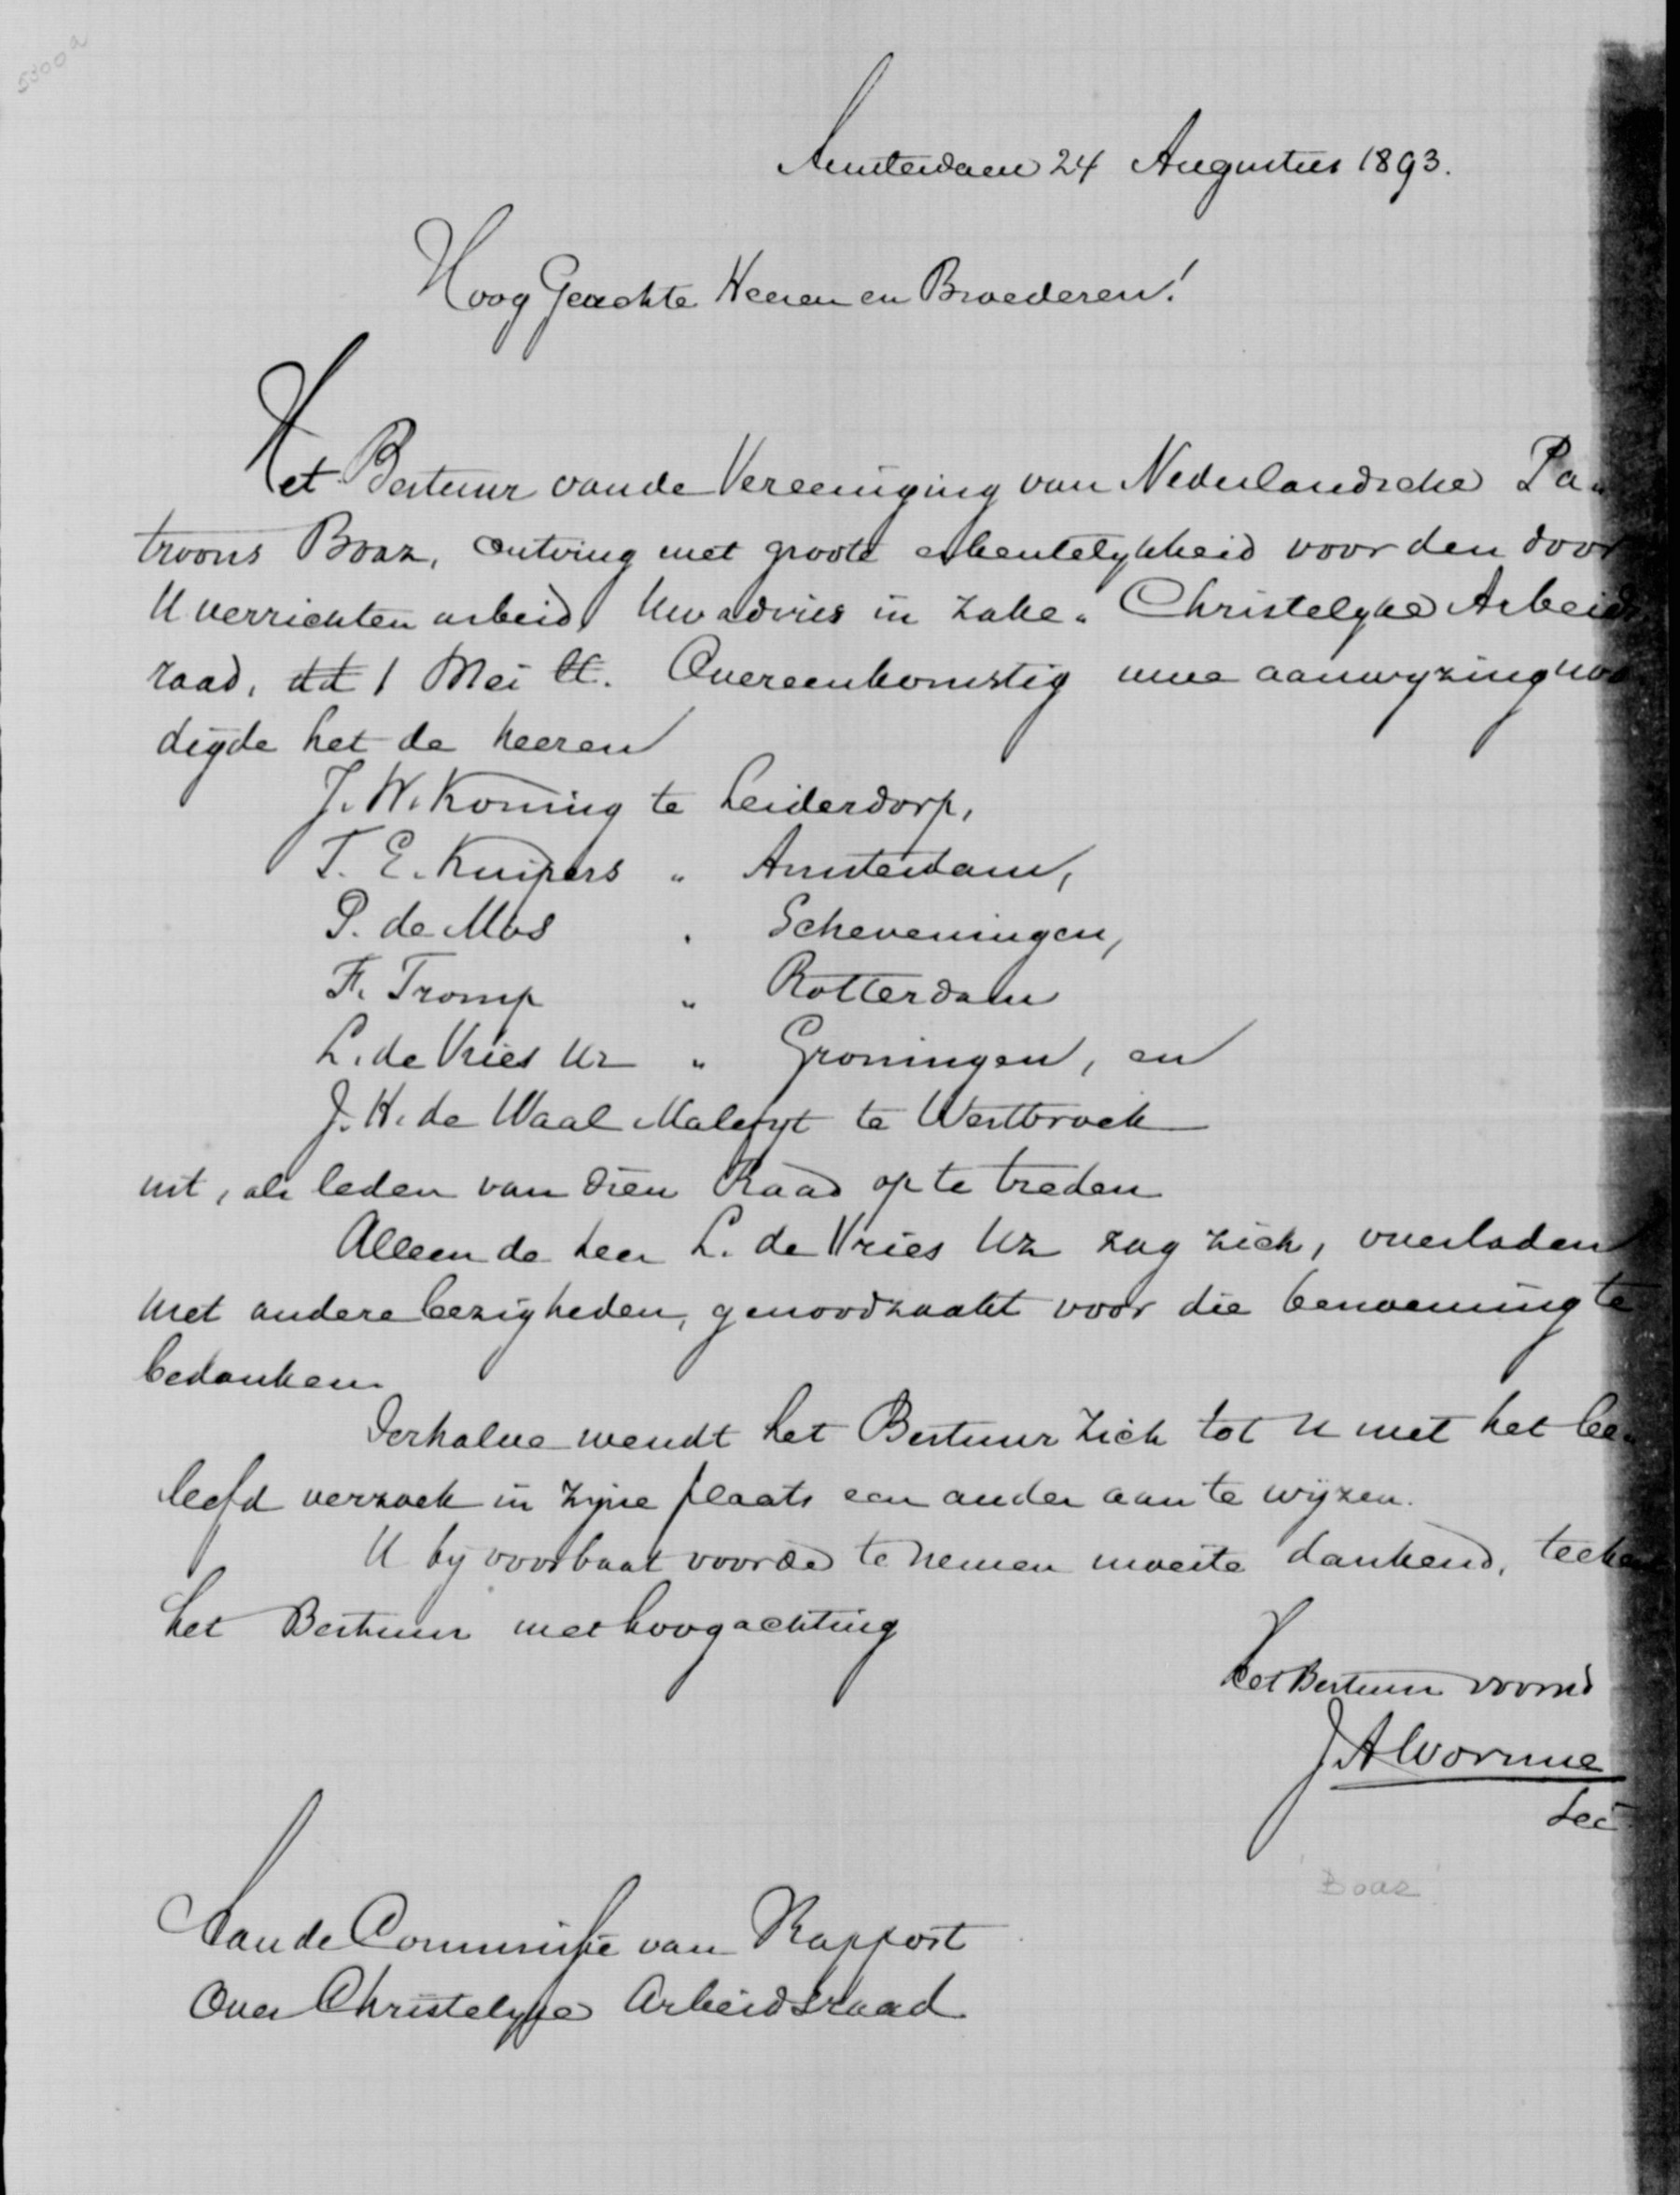 5300a
Amsterdam 24 Augustus 1893.
Hoog Geachte Heeren en Broederen!
Het Bestuur van de Vereeniging van Nederlandsche Pa-
troons Boaz, ontving met groote erkentelykheid voor den door
U verrichten arbeid, Uw advies in zake „ Christelyke Arbeids
raad, dd 1 Mei ll. Overeenkomstig uwe aanwyzing noo
digde het de heeren
J. W. Koning te Leiderdorp,
T. E. Kuipers „ Amsterdam,
P. de Mos „ Scheveningen,
F. Tromp „ Rotterdam
L. de Vries Uz „ Groningen, en
J. H. de Waal Malefyt te Westbroek
uit, als leden van dien Raad op te treden
Alleen de heer L. de Vries Uz zag zich, overladen
met andere bezigheden, genoodzaakt voor die benoeming te
bedanken.
Derhalve wendt het Bestuur zich tot U met het be-
leefd verzoek in zijne plaats een ander aan te wijzen.
U bij voorbaat voor de te nemen moeite dankend, teeken
het Bestuur met hoogachting
Het Bestuur voornd
J. A Wormse
Sec
Boaz
Aan de Commissie van Rapport
over Christelyke Arbeidsraad